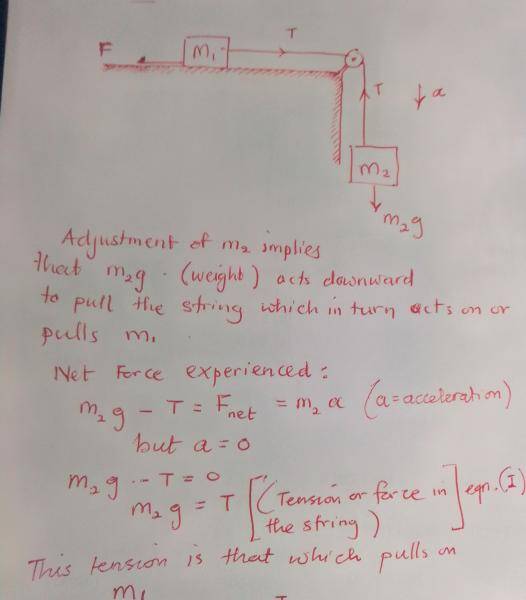 F
m₁
T
T
a
m₂
m₂g
Adjustment of m₂ implies
that m₂g (weight) acts downward
to pull the string which in turn acts on or
pulls m₁
Net Force experienced:
m₂g - T = Fnet = m₂a (a=acceleration)
but a = 0
m₂g - T = 0
m₂g = T [(Tension or force in the string)] eqn. (I)
This tension is that which pulls on
m₁